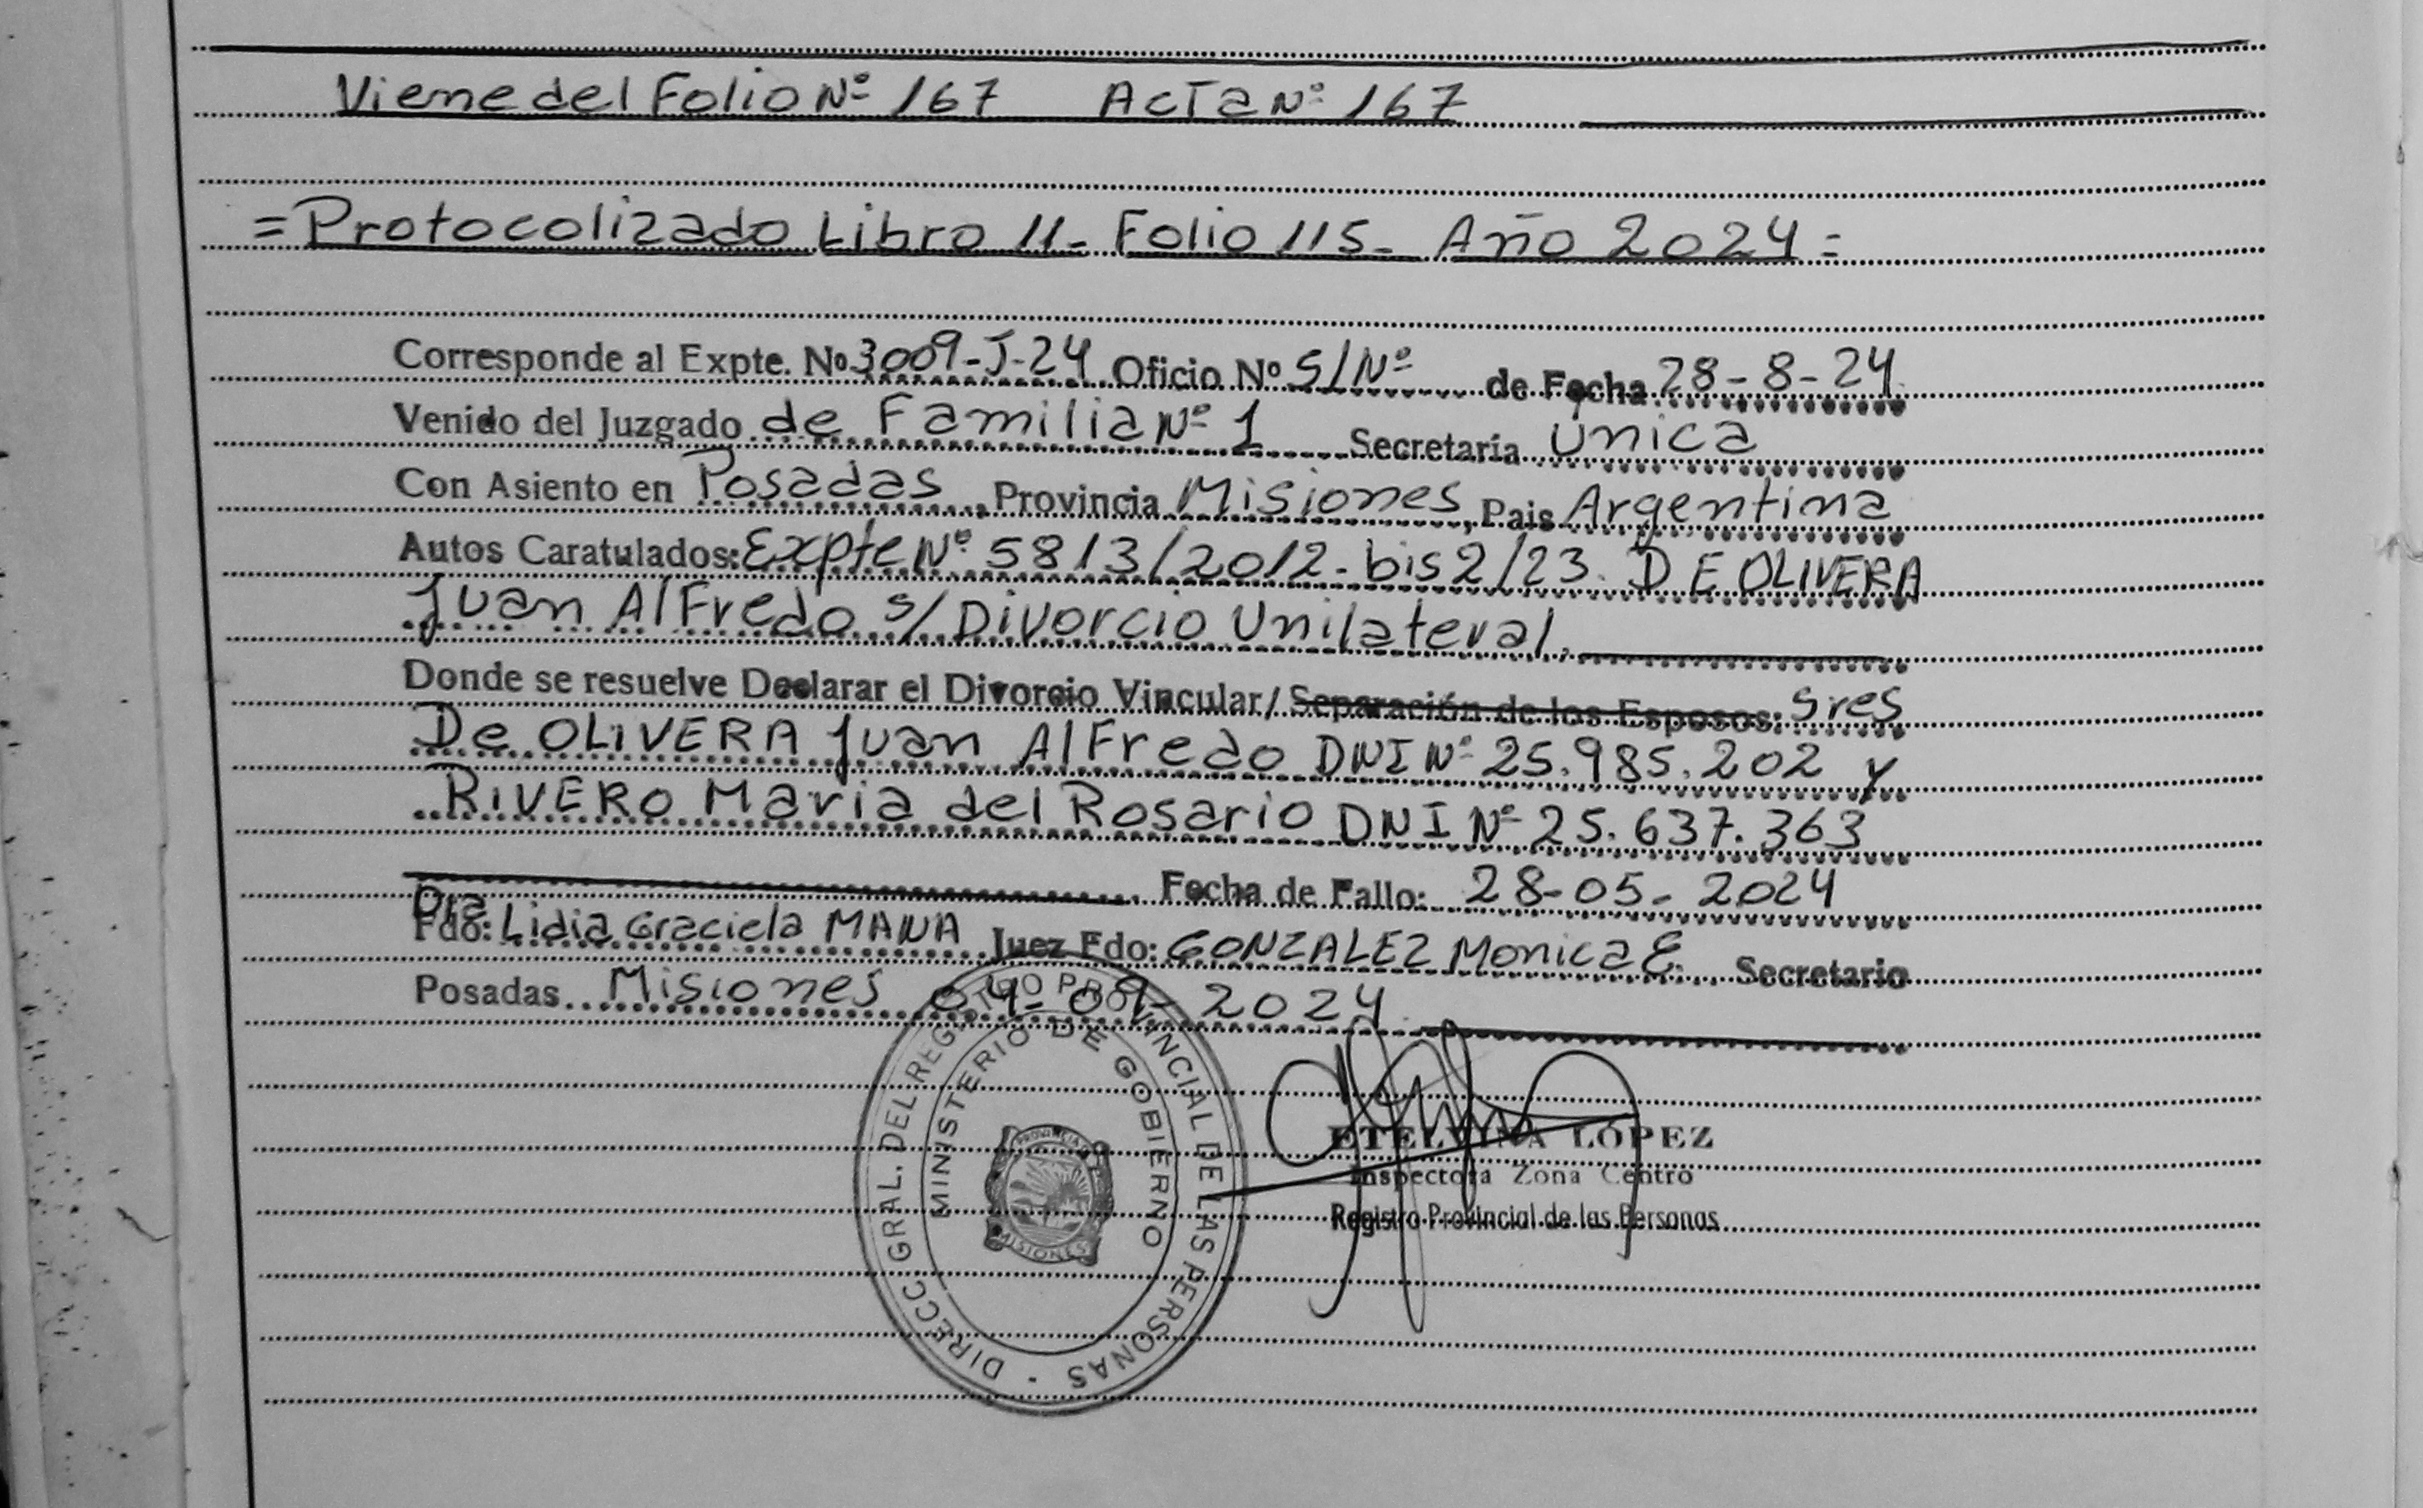 Viene del Folio Nº 167 Acta Nº 167
= Protocolizado Libro 11- Folio 115- Año 2024 =
Corresponde al Expte. Nº 3009-J-24 Oficio Nº S/Nº de Fecha 28-8-24
Venido del Juzgado de Familia Nº 1 Secretaría Única
Con Asiento en Posadas, Provincia Misiones, Pais Argentina
Autos Caratulados: Expte Nº 5813/2012- bis 2/23. DE OLIVERA
Juan Alfredo s/ Divorcio Unilateral.
Donde se resuelve Declarar el Divorcio Vincular/ Separación de los Esposos: Sres
De OLIVERA Juan Alfredo DNI Nº 25.985.202 y
RIVERO Maria del Rosario DNI Nº 25.637.363
Fecha de Fallo: 28-05-2024
Dra
Fdo: Lidia Graciela MANA Juez Fdo: GONZALEZ Monica E. Secretario
Posadas Misiones 04-09-2024
DIRECC GRAL. DEL REGISTRO PROVINCIAL DE LAS PERSONAS -
MINISTERIO DE GOBIERNO
PROVINCIA DE
MISIONES
ETELVINA LÓPEZ
Inspectora Zona Centro
Registro Provincial de las Personas